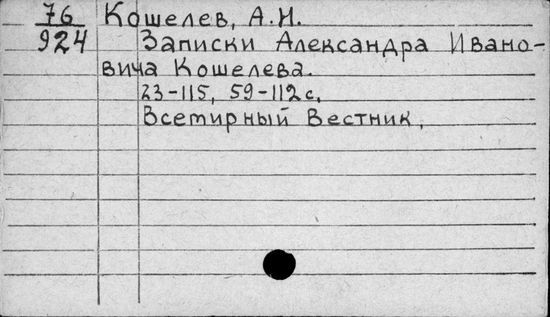 76 Кошелев, А.И.
924 Записки Александра Ивано-
вича Кошелева.
23-115, 59-112с.
Всемирный Вестник.